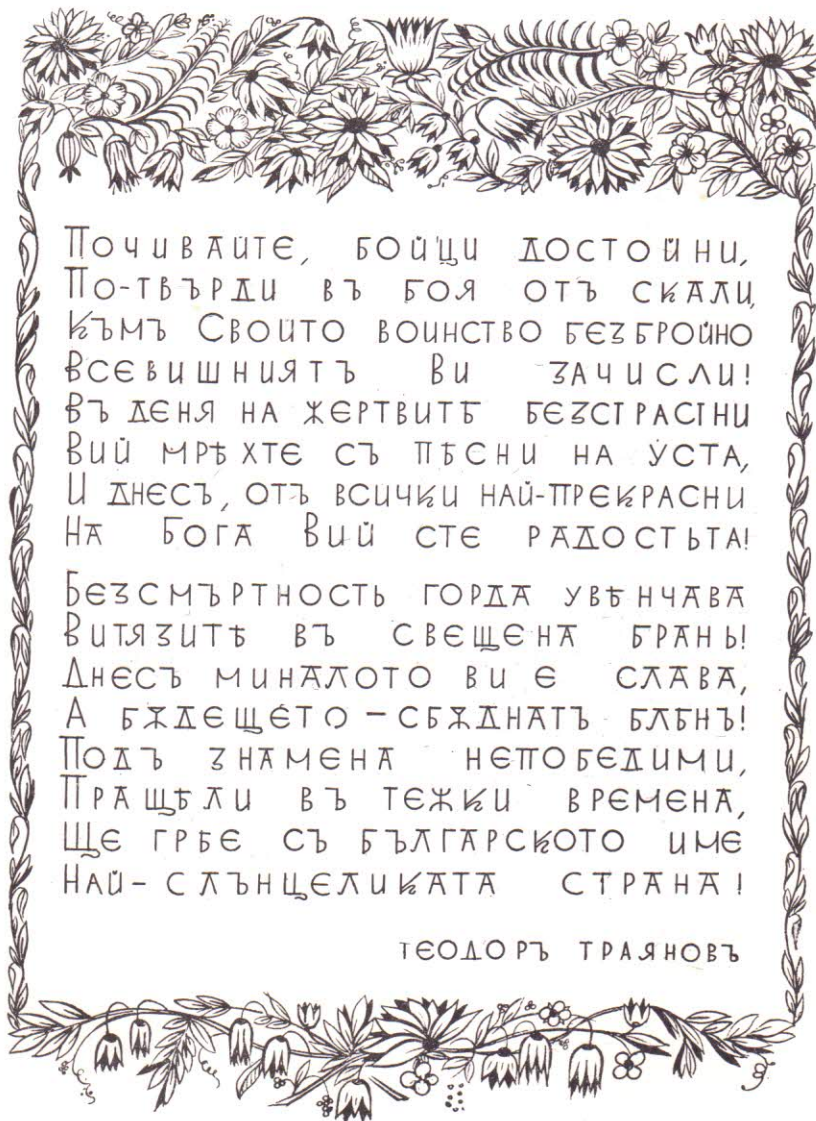 Почивайте, бойци достойни,
По-твърди въ боя отъ скали,
Към​ъ Своито воинство безбройно
Всевишниятъ Ви зачисли!
Въ деня на жертвитѣ безстрастни
Вий мрѣхте съ пѣсни на уста,
И днесъ, отъ всички най-прекрасни
На Бога Вий сте радостьта!
Безсмъртность горда увѣнчава
Витязитѣ въ свещена брань!
Днесъ миналото ви е слава,
А бѫдещето – сбѫднатъ блѣнъ!
Подъ знамена непобедими,
Пращѣли въ тежки времена,
Ще грѣе съ българското име
Най-слънцеликата страна!
Теодоръ Траяновъ